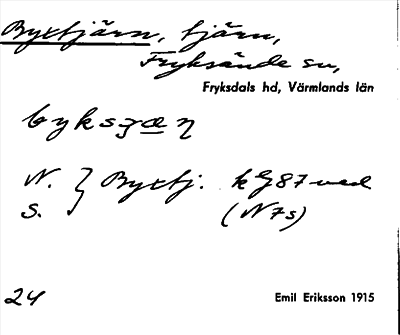 Byxtjärn, tjärn,
Fryksände sn,
Fryksdals hd, Värmlands län
N. } Byxtj. kG87 ved
S. (N7s)
24
Emil Eriksson 1915